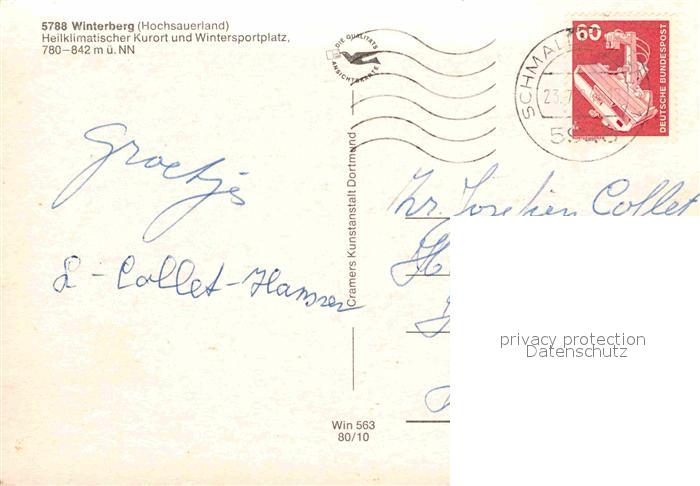 5788 Winterberg (Hochsauerland)
Heilklimatischer Kurort und Wintersportplatz,
780–842 m ü. NN
DIE QUALITÄTS
ANSICHTSKARTE
60
DEUTSCHE BUNDESPOST
SCHMAL
23.7
Groetjes
L - Collet-Hamer
Cramers Kunstanstalt Dortmund
Zr. Collet
privacy protection
Datenschutz
Win 563
80/10